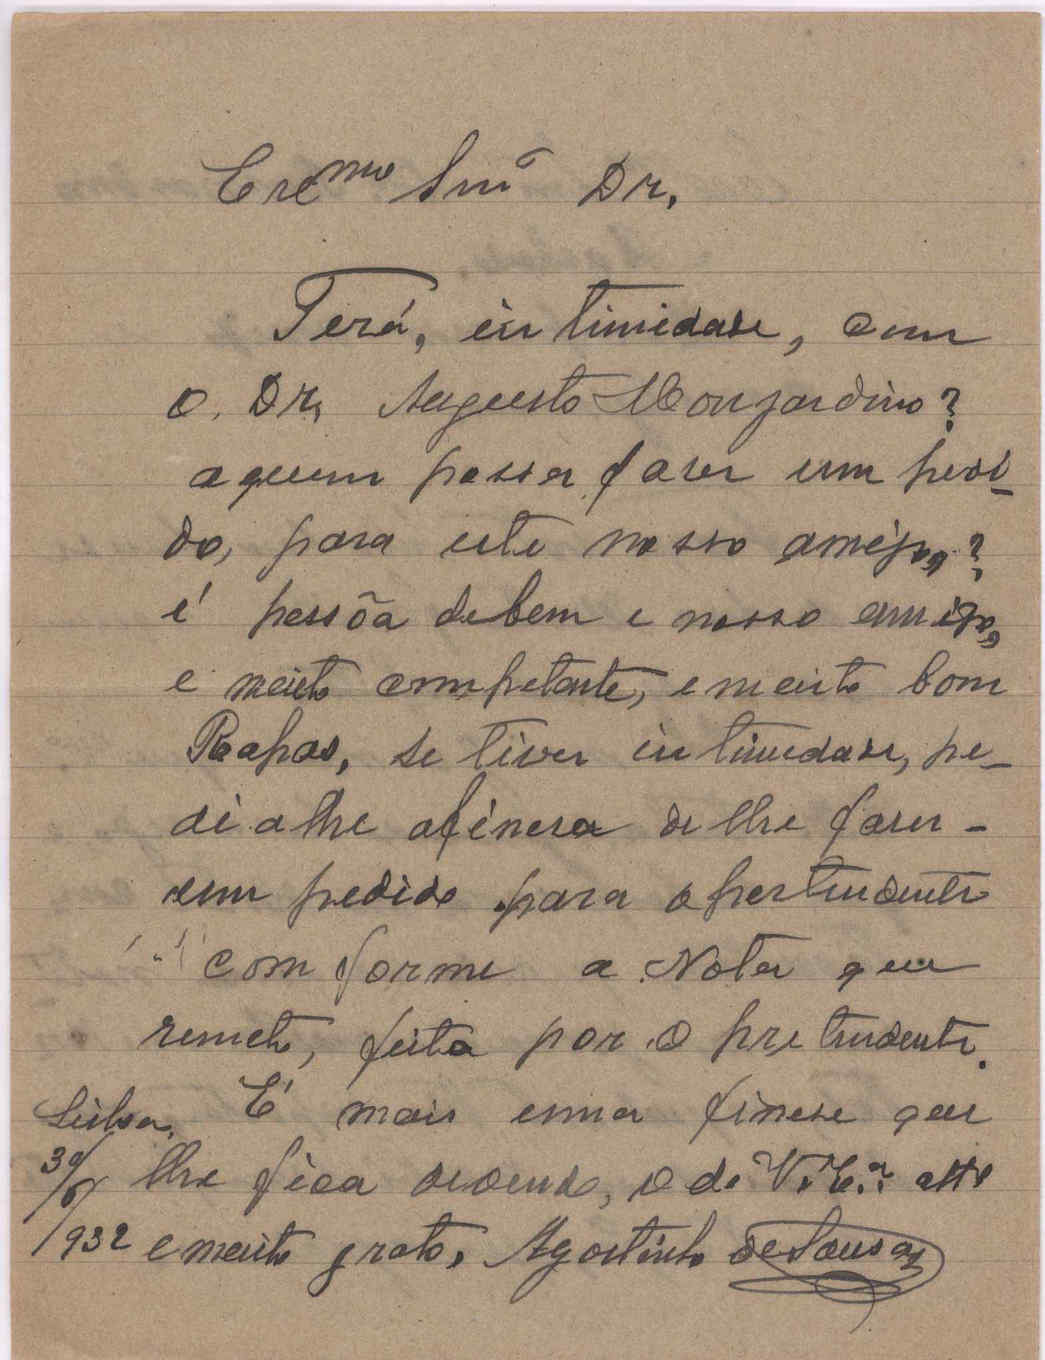 Excmo Snr Dr.
Terá, intimidade, com
o. Dr. Augusto Monjardino?
aquem possa faser um pedi-
do, para este nosso amigo,?
é pessõa debem e nosso amigo,
e muito competente, e muito bom
Rapas, se tiver intimidade, pe-
dialhe afinesa de lhe faser-
um pedido para opertendente
comforme a Nota que
remeto, feita por o pretendente.
É mais uma finese que
lhe fica devendo, o de V. Exª. attº
e muito grato, Agostinho de Sousa
Lisboa,
30/6/932